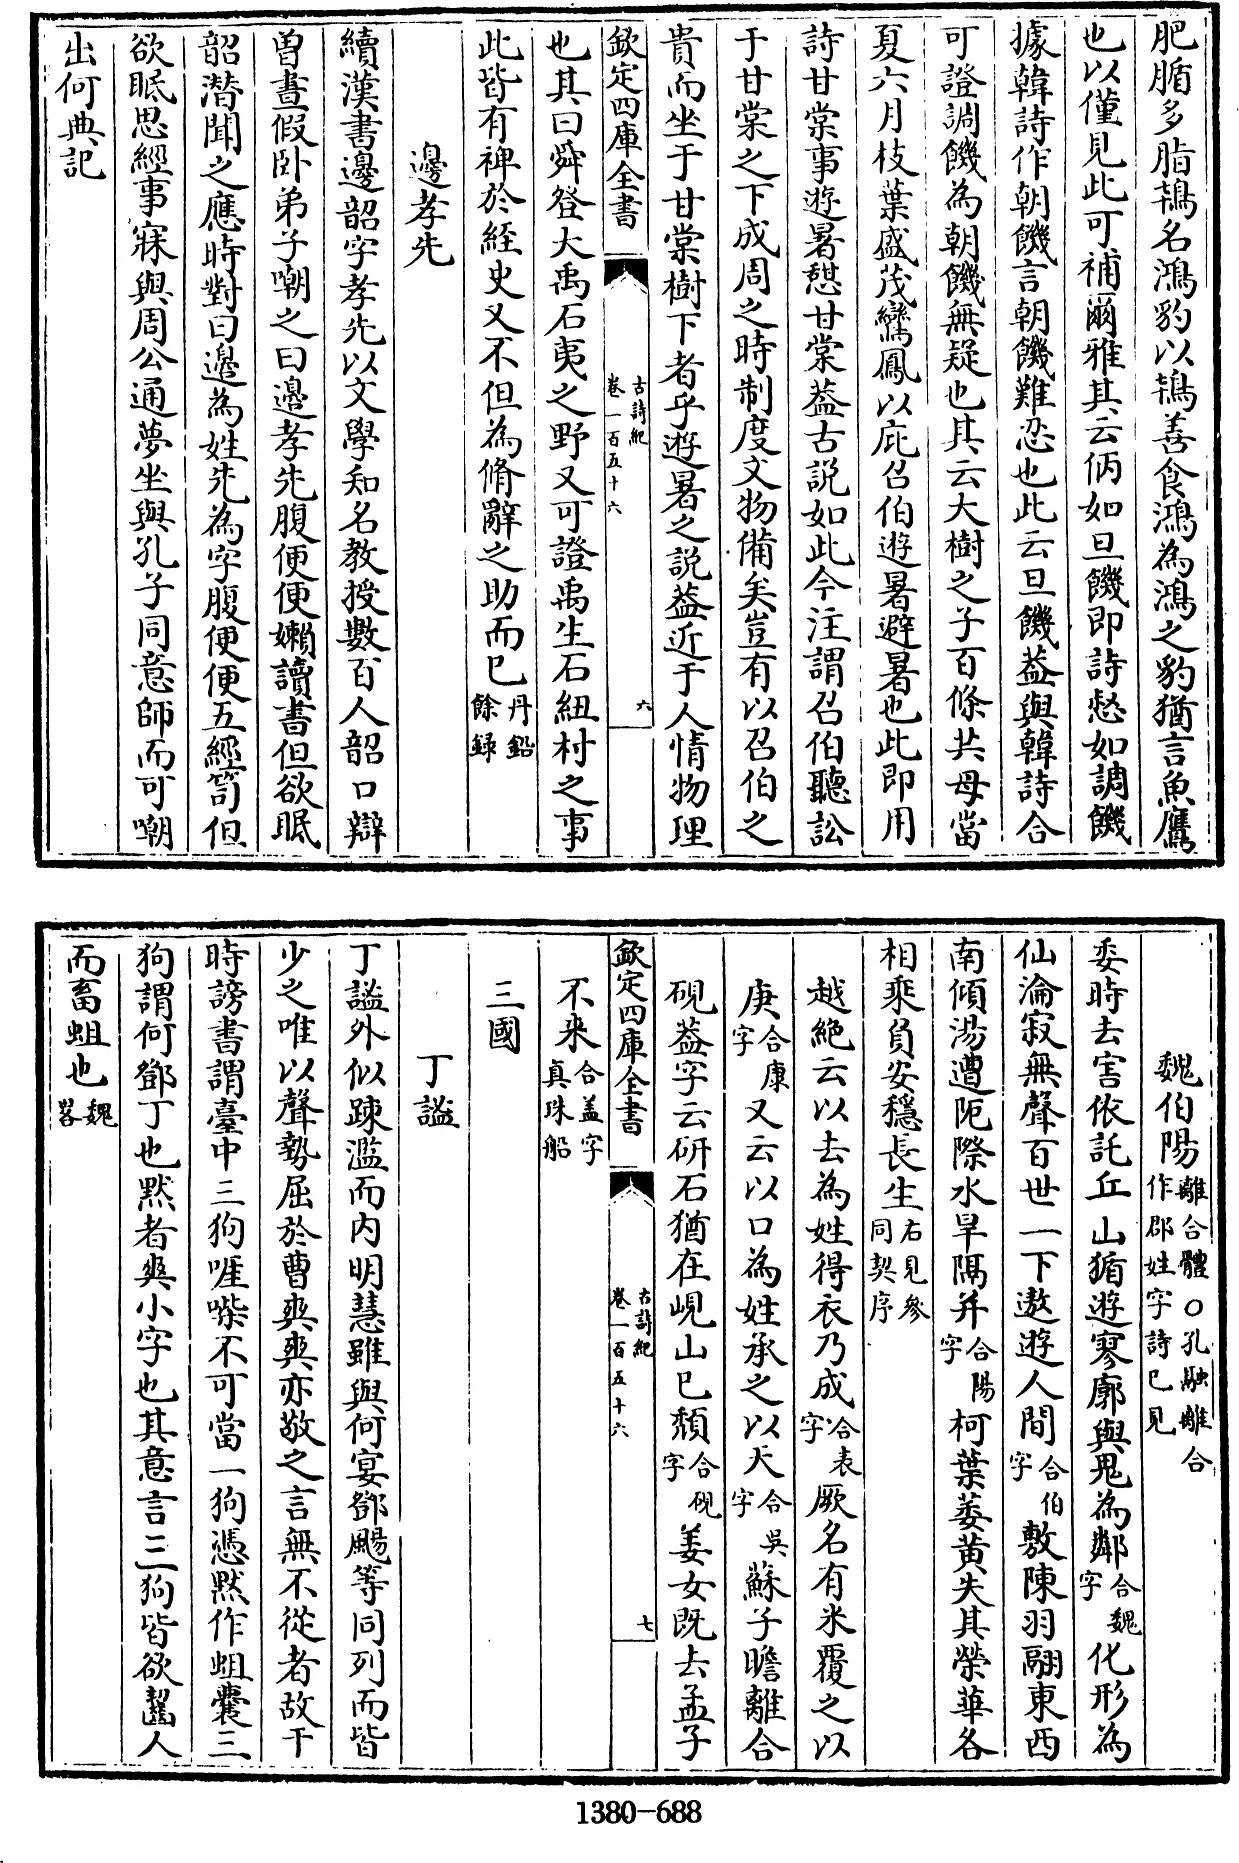 肥腯多脂鴇名鴻豹以鴇善食鴻為鴻之豹猶言魚鷹
也以僅見此可補爾雅其云㑂如旦饑即詩惄如調饑
據韓詩作朝饑言朝饑難忍也此云旦饑葢與韓詩合
可證調饑為朝饑無疑也其云大樹之子百條共母當
夏六月枝葉盛茂鸞鳳以庇召伯遊暑避暑也此即用
詩甘棠事遊暑憇甘棠葢古説如此今注謂召伯聽訟
于甘棠之下成周之時制度文物備矣豈有以召伯之
貴而坐于甘棠樹下者乎遊暑之説葢近于人情物理
欽定四庫全書
古詩紀
卷一百五十六
六
也其曰舜登大禹石夷之野又可證禹生石紐村之事
此皆有裨於經史又不但為脩辭之助而已丹鉛
餘録
邊孝先
續漢書邊韶字孝先以文學知名教授數百人韶口辯
曽晝假卧弟子嘲之曰邊孝先腹便便嬾讀書但欲眠
韶潜聞之應時對曰邊為姓先為字腹便便五經笥但
欲眠思經事寐與周公通夢坐與孔子同意師而可嘲
出何典記
魏伯陽離合體○孔融離合
作郡姓字詩已見
委時去害依託丘山循遊寥廓與鬼為鄰合魏
字化形為
仙淪寂無聲百世一下遨遊人間合伯
字敷陳羽翮東西
南傾湯遭阨際水旱隔并合陽
字柯葉萎黄失其榮華各
相乘負安穩長生右見參
同契序
越絶云以去為姓得衣乃成合袁
字厥名有米覆之以
庚合康
字又云以口為姓承之以天合吳
字蘇子瞻離合
硯葢字云研石猶在峴山已頹合硯
字姜女既去孟子
欽定四庫全書
古詩紀
卷一百五十六
七
不来合葢字
真珠船
三國
丁謐
丁謐外似踈濫而内明慧雖與何宴鄧颺等同列而皆
少之唯以聲勢屈於曹爽爽亦敬之言無不從者故于
時謗書謂臺中三狗啀喍不可當一狗憑默作蛆囊三
狗謂何鄧丁也默者爽小字也其意言三狗皆欲齧人
而畜蛆也魏
畧
1380-688